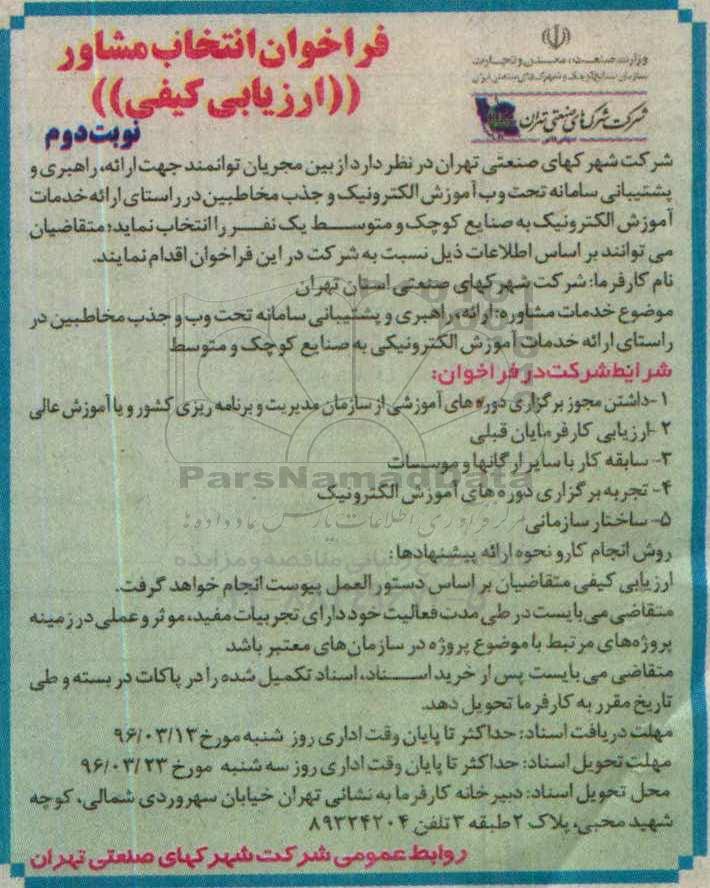 وزارت صنعت، معدن و تجارت
سازمان صنایع کوچک و شهرکهای صنعتی ایران
شرکت شهرک‌های صنعتی تهران
فراخوان انتخاب مشاور
((ارزیابی کیفی))
نوبت دوم
شرکت شهرکهای صنعتی تهران در نظر دارد از بین مجریان توانمند جهت ارائه، راهبری و
پشتیبانی سامانه تحت وب آموزش الکترونیک و جذب مخاطبین در راستای ارائه خدمات
آموزش الکترونیک به صنایع کوچک و متوسط یک نفر را انتخاب نماید؛ متقاضیان
می توانند بر اساس اطلاعات ذیل نسبت به شرکت در این فراخوان اقدام نمایند.
نام کارفرما: شرکت شهرکهای صنعتی استان تهران
موضوع خدمات مشاوره: ارائه، راهبری و پشتیبانی سامانه تحت وب و جذب مخاطبین در
راستای ارائه خدمات آموزش الکترونیکی به صنایع کوچک و متوسط
شرایط شرکت در فراخوان:
۱-داشتن مجوز برگزاری دوره های آموزشی از سازمان مدیریت و برنامه ریزی کشور و یا آموزش عالی
۲-ارزیابی کارفرمایان قبلی
۳- سابقه کار با سایر ارگانها و موسسات
ParsNamadData
۴- تجربه برگزاری دوره های آموزش الکترونیک
مرکز فرآوری اطلاعات پارس نماد داده ها
۵- ساختار سازمانی
روش انجام کار و نحوه ارائه پیشنهادها:
ارزیابی کیفی متقاضیان بر اساس دستورالعمل پیوست انجام خواهد گرفت.
متقاضی می بایست در طی مدت فعالیت خود دارای تجربیات مفید، موثر و عملی در زمینه
پروژه‌های مرتبط با موضوع پروژه در سازمان‌های معتبر باشد
متقاضی می بایست پس از خرید اسناد، اسناد تکمیل شده را در پاکات در بسته و طی
تاریخ مقرر به کارفرما تحویل دهد.
مهلت دریافت اسناد: حداکثر تا پایان وقت اداری روز شنبه مورخ ۹۶/۰۳/۱۳
مهلت تحویل اسناد: حداکثر تا پایان وقت اداری روز سه شنبه مورخ ۹۶/۰۳/۲۳
محل تحویل اسناد: دبیرخانه کارفرما به نشانی تهران خیابان سهروردی شمالی، کوچه
شهید محبی، پلاک ۲ طبقه ۳ تلفن ۸۹۳۲۴۲۰۴
روابط عمومی شرکت شهرکهای صنعتی تهران